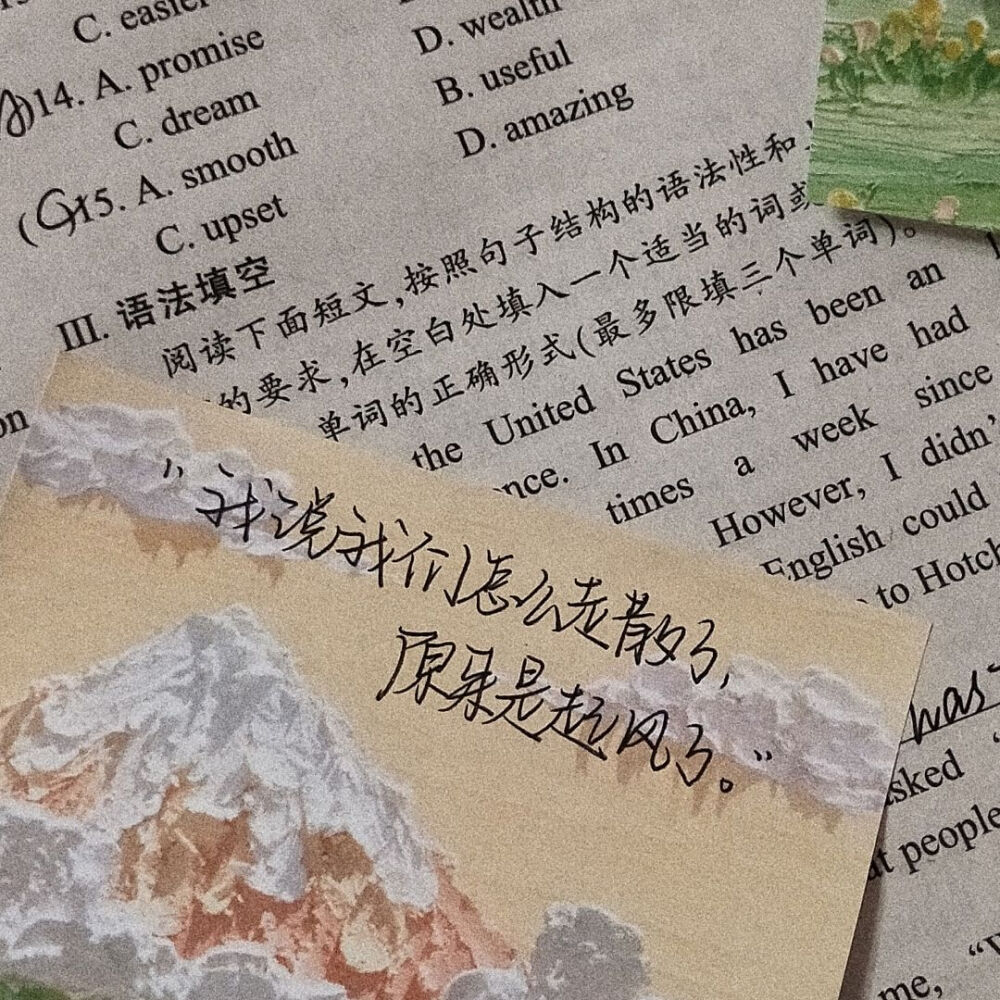 C. easier
D. wealth
14. A. promise
B. useful
C. dream
D. amazing
(C)15. A. smooth
C. upset
III. 语法填空
阅读下面短文,按照句子结构的语法性和
的要求,在空白处填入一个适当的词或
单词的正确形式(最多限填三个单词)。
the United States has been an
In China, I have had
times a week since
However, I didn'
English could
to Hotch
was
asked "
people
me, "
"我说我们怎么走散了,
原来是起风了。"